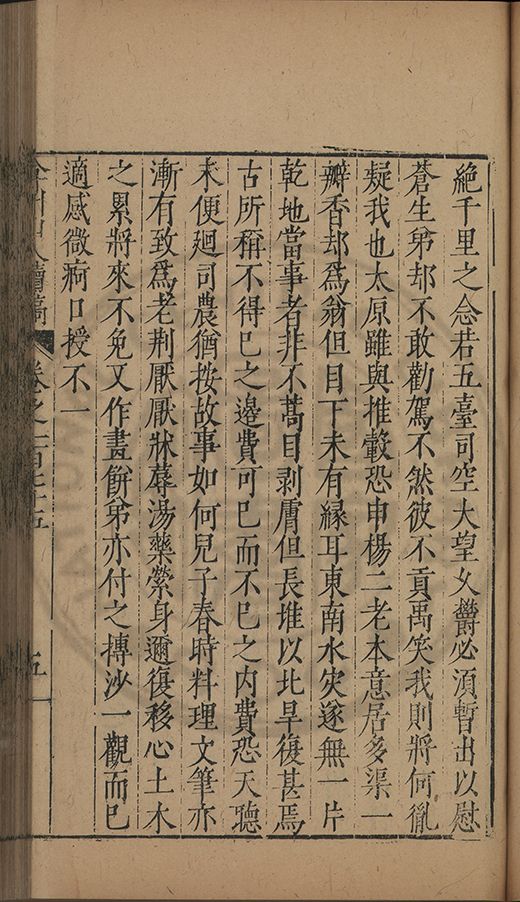 絶千里之念若五臺司空大望久欝必須暫出以慰
蒼生第却不敢勸駕不然彼不貢禹笑我則將何胤
疑我也太原雖與推轂恐申楊二老本意居多渠一
瓣香却爲翁但目下未有縁耳東南水灾遂無一片
乾地當事者非不蒿目剥膚但長堆以北旱復甚焉
古所稱不得已之邊費可已而不已之内費恐天聽
未便廻司農猶按故事如何兒子春時料理文筆亦
漸有致爲老荆厭厭牀蓐湯藥縈身邇復移心土木
之累將來不免又作畫餅弟亦付之摶沙一觀而已
適感微痾口授不一
弇州山人續稿
卷之一百七十五
五